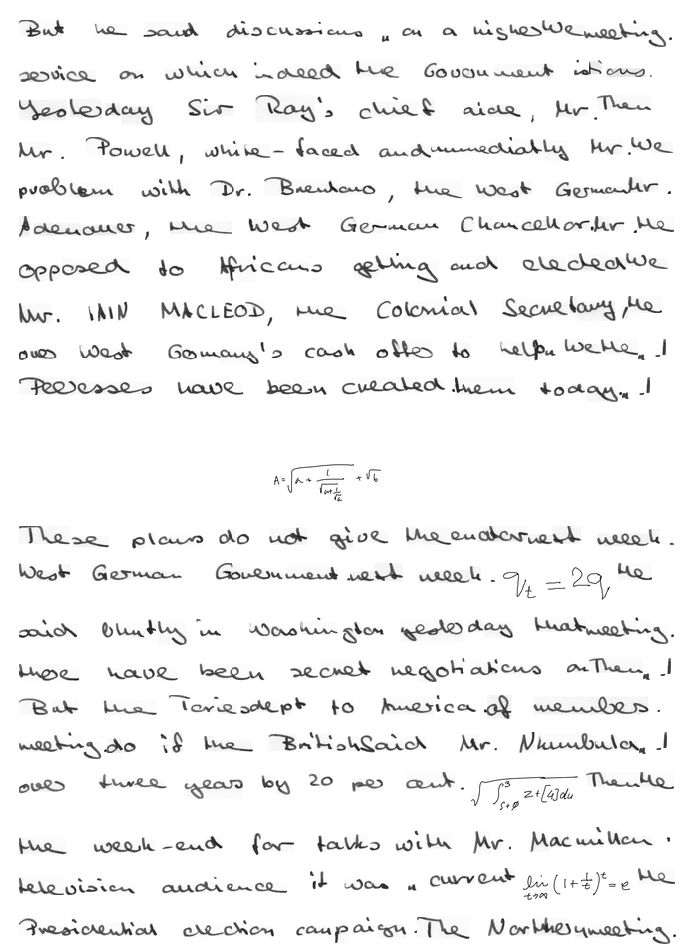 But he said discussions " on a higher We meeting.
service on which indeed the Government
Yesterday Sir Roy's chief aide, Mr. Then
Mr. Powell, white-faced and immediatly Mr. We
problem with Dr. Brentano, the West German Mr.
Adenauer, the West German Chancellor. Mr. He
opposed to Africans getting and elected We
Mr. IAIN MACLEOD, the Colonial Secretary, He
over West Germany's cash offer to help We He " !
Peeresses have been created. them today. " !
A=\sqrt{a+\frac{1}{\sqrt{a+\frac{1}{\sqrt{a}}}}}+\sqrt{b}
These plans do not give the next week.
West German Government next week. q_t = 2q He
said bluntly in Washington yesterday that meeting.
these have been secret negotiations on Then " !
But the Tories dept to America of member.
meeting. do if the British Said Mr. Nkumbula. " !
over three years by 20 per cent. \sqrt{\int_{s+\phi}^{3} z+[4]du} Then He
the week-end for talks with Mr. Macmillan.
television audience it was " current \lim_{t \to \infty}(1+\frac{1}{t})^t=e He
Presidential election campaign. The Northern meeting.